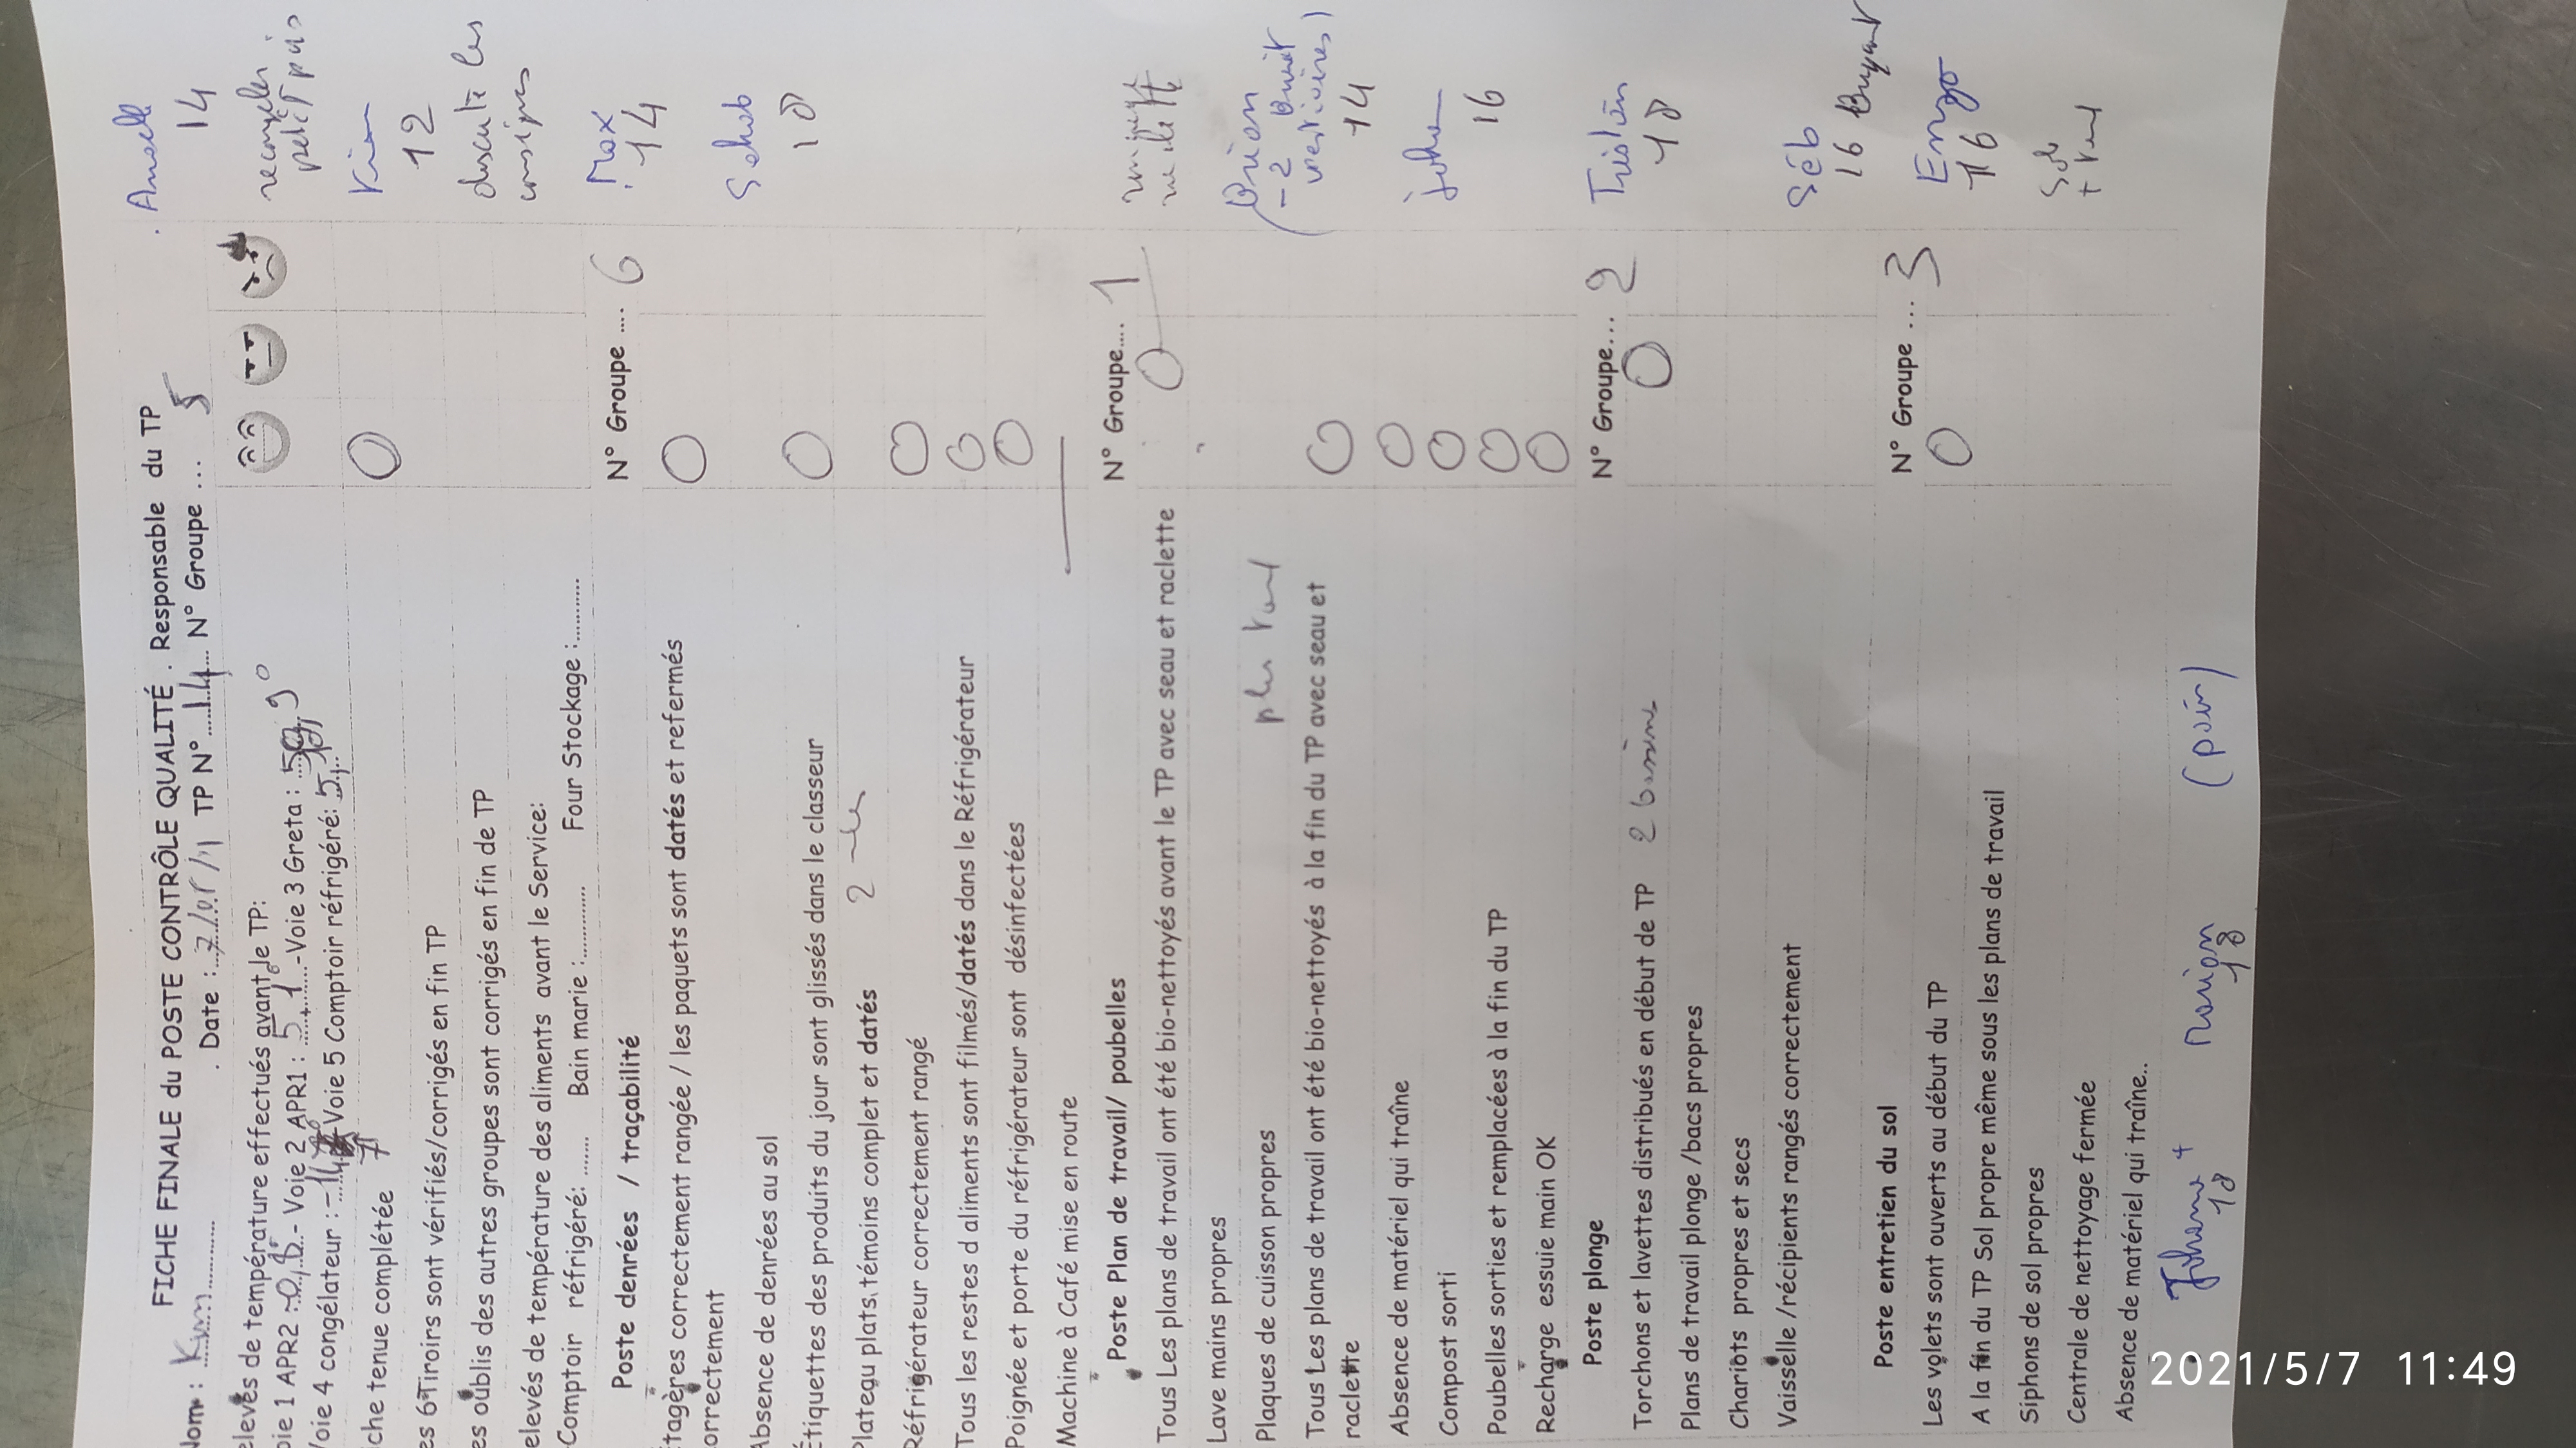 FICHE FINALE du POSTE CONTRÔLE QUALITÉ . Responsable du TP
Nom : Kim . Date : 7/05/ TP N° 14 N° Groupe ... 5
elevés de température effectués avant le TP:
oie 1 APR2 : - Voie 2 APR1 : 5,1° -Voie 3 Greta : 9°
Voie 4 congélateur : Voie 5 Comptoir réfrigéré:
che tenue complétée
es 6Tiroirs sont vérifiés/corrigés en fin TP
es oublis des autres groupes sont corrigés en fin de TP
elevés de température des aliments avant le Service:
Comptoir réfrigéré: ....... Bain marie :............. Four Stockage :..........
Poste denrées / traçabilité N° Groupe .... 6
tagères correctement rangée / les paquets sont datés et refermés
orrectement
Absence de denrées au sol
Étiquettes des produits du jour sont glissés dans le classeur
Plateau plats témoins complet et datés 2
Réfrigérateur correctement rangé
Tous les restes d aliments sont filmés/datés dans le Réfrigérateur
Poignée et porte du réfrigérateur sont désinfectées
Machine à Café mise en route
Poste Plan de travail/ poubelles N° Groupe.... 1
Tous Les plans de travail ont été bio-nettoyés avant le TP avec seau et raclette
Lave mains propres
Plaques de cuisson propres plus tard
Tous Les plans de travail ont été bio-nettoyés à la fin du TP avec seau et
raclette
Absence de matériel qui traîne
Compost sorti
Poubelles sorties et remplacées à la fin du TP
Recharge essuie main OK
Poste plonge N° Groupe... 2
Torchons et lavettes distribués en début de TP 2
Plans de travail plonge /bacs propres
Chariots propres et secs
Vaisselle /récipients rangés correctement
Poste entretien du sol N° Groupe ... 3
Les volets sont ouverts au début du TP
A la fin du TP Sol propre même sous les plans de travail
Siphons de sol propres
Centrale de nettoyage fermée
Absence de matériel qui traîne..
18
18
14
12
discute les
consignes
Max
14
18
-2 Bruit
vestiaires)
14
16
Tristan
18
Séb
16 Bruyant
Enzo
16
2021/5/7 11:49